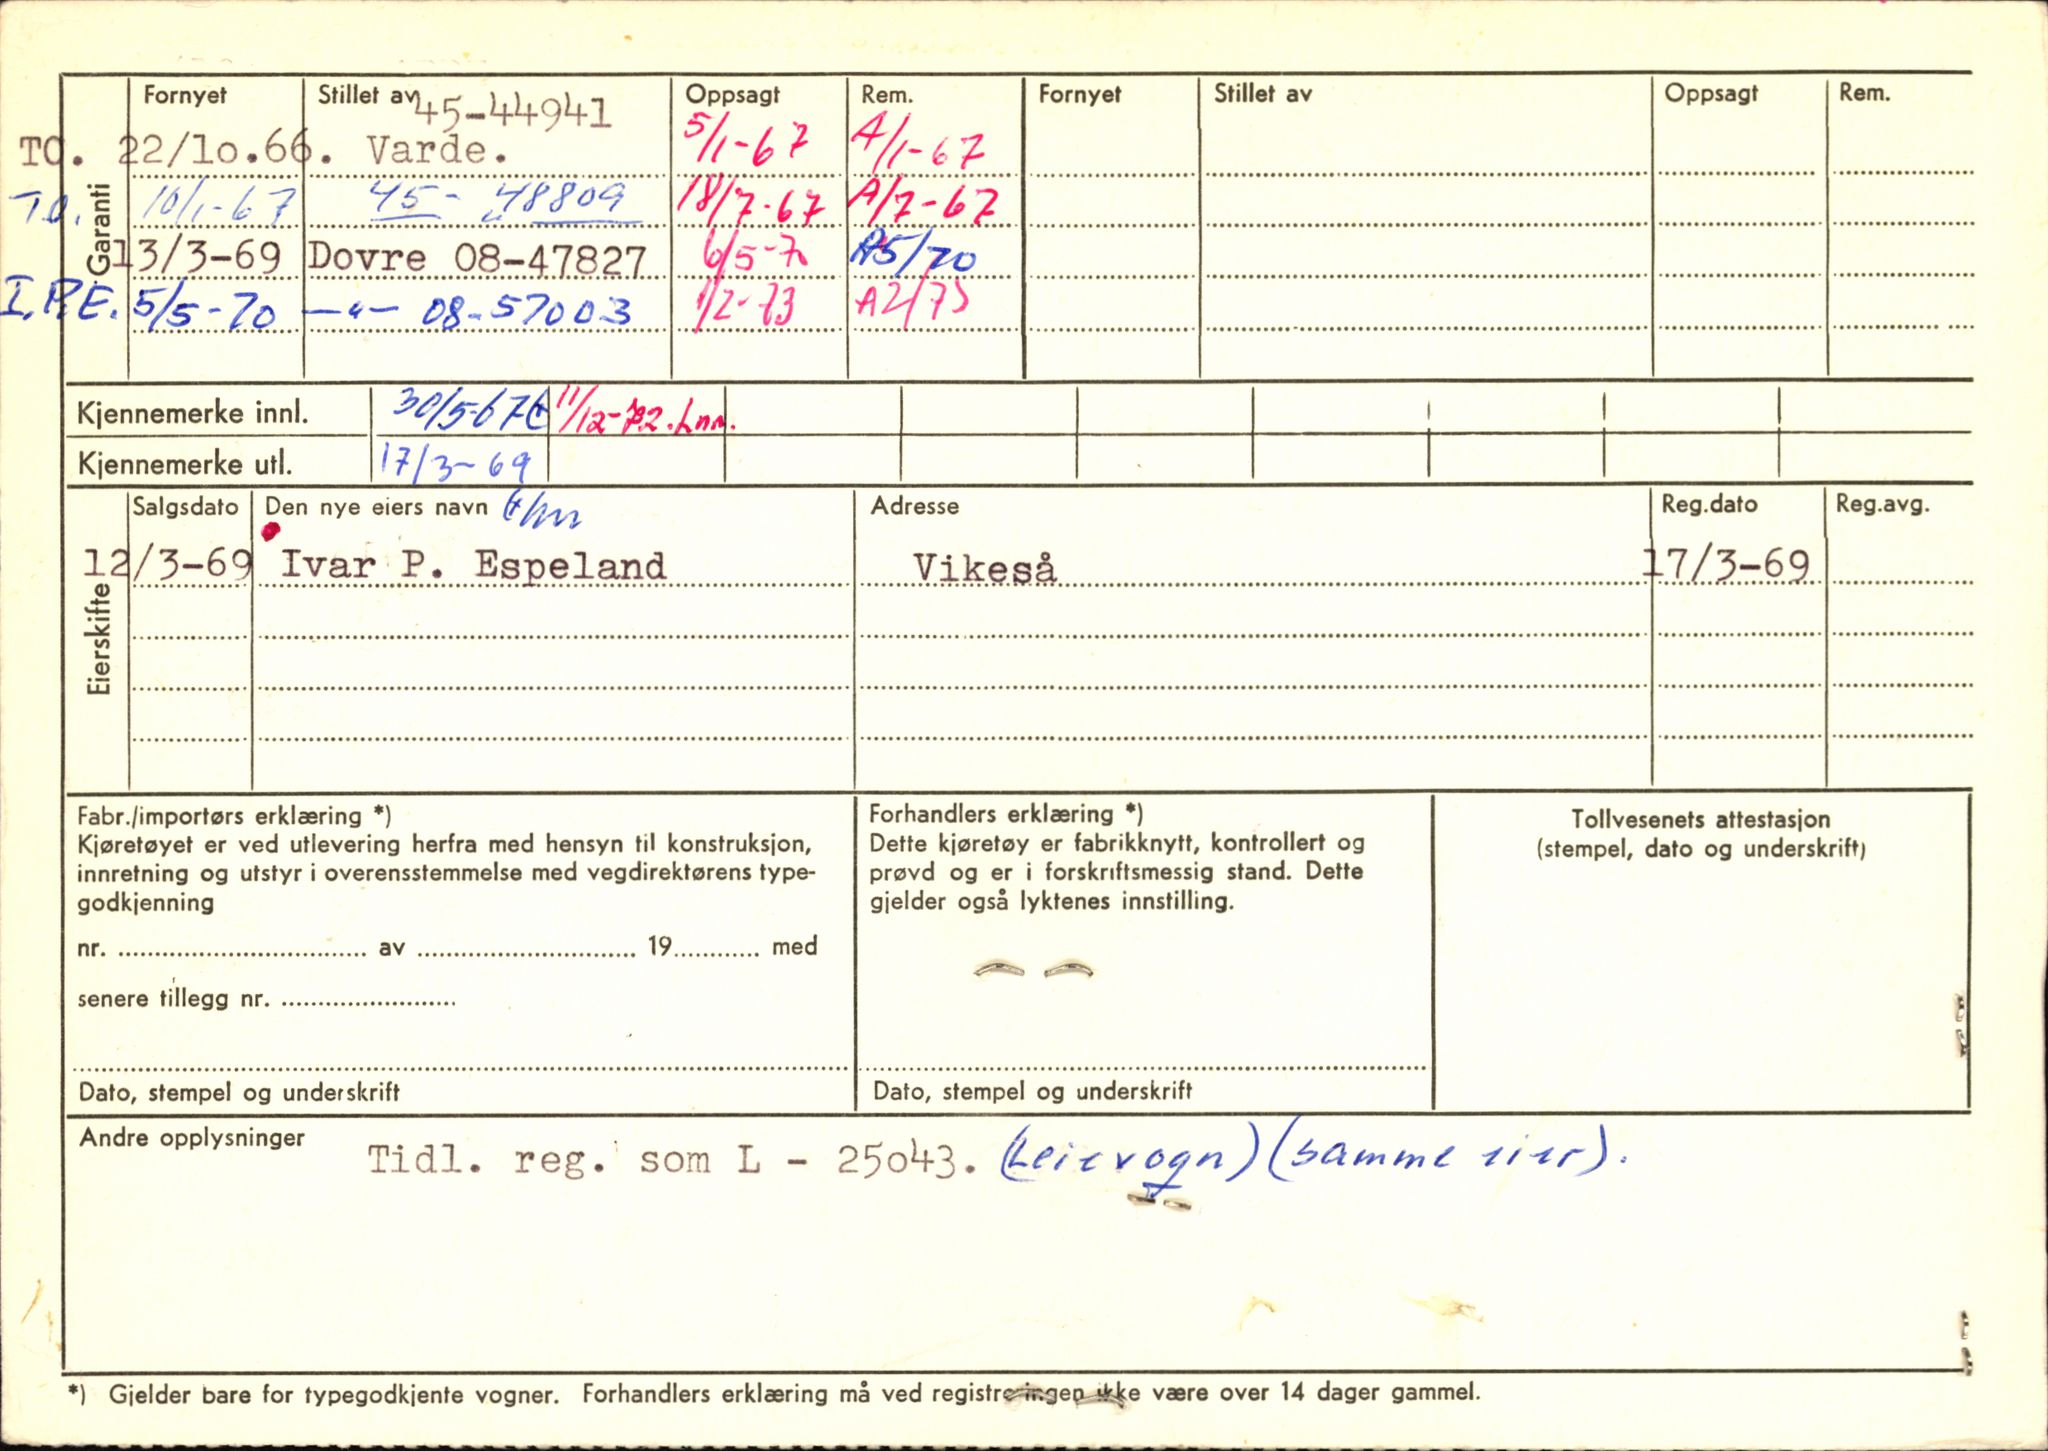 Garanti
Fornyet Stillet av Oppsagt Rem. Fornyet Stillet av Oppsagt Rem.
45-44941
TO. 22/lo.66. Varde. 5/1-67 A/1-67
TO. 10/1-67 45- 48809 18/7-67 A/7-67
13/3-69 Dovre 08-47827 6/5-70 A5/70
I.P.E. 5/5-70 —"— 08-57003 1/2-73 A2/73
Kjennemerke innl. 30/5-67 11/12-72. Lnn.
Kjennemerke utl. 17/3-69
Eierskifte
Salgsdato Den nye eiers navn Adresse Reg.dato Reg.avg.
12/3-69 Ivar P. Espeland Vikeså 17/3-69
Fabr./importørs erklæring *)
Kjøretøyet er ved utlevering herfra med hensyn til konstruksjon,
innretning og utstyr i overensstemmelse med vegdirektørens type-
godkjenning
nr. ........ av ........ 19........ med
senere tillegg nr. ........
Dato, stempel og underskrift
Forhandlers erklæring *)
Dette kjøretøy er fabrikknytt, kontrollert og
prøvd og er i forskriftsmessig stand. Dette
gjelder også lyktenes innstilling.
Dato, stempel og underskrift
Tollvesenets attestasjon
(stempel, dato og underskrift)
Andre opplysninger Tidl. reg. som L - 25o43. (Leievogn) (samme eier).
*) Gjelder bare for typegodkjente vogner. Forhandlers erklæring må ved registreringen ikke være over 14 dager gammel.